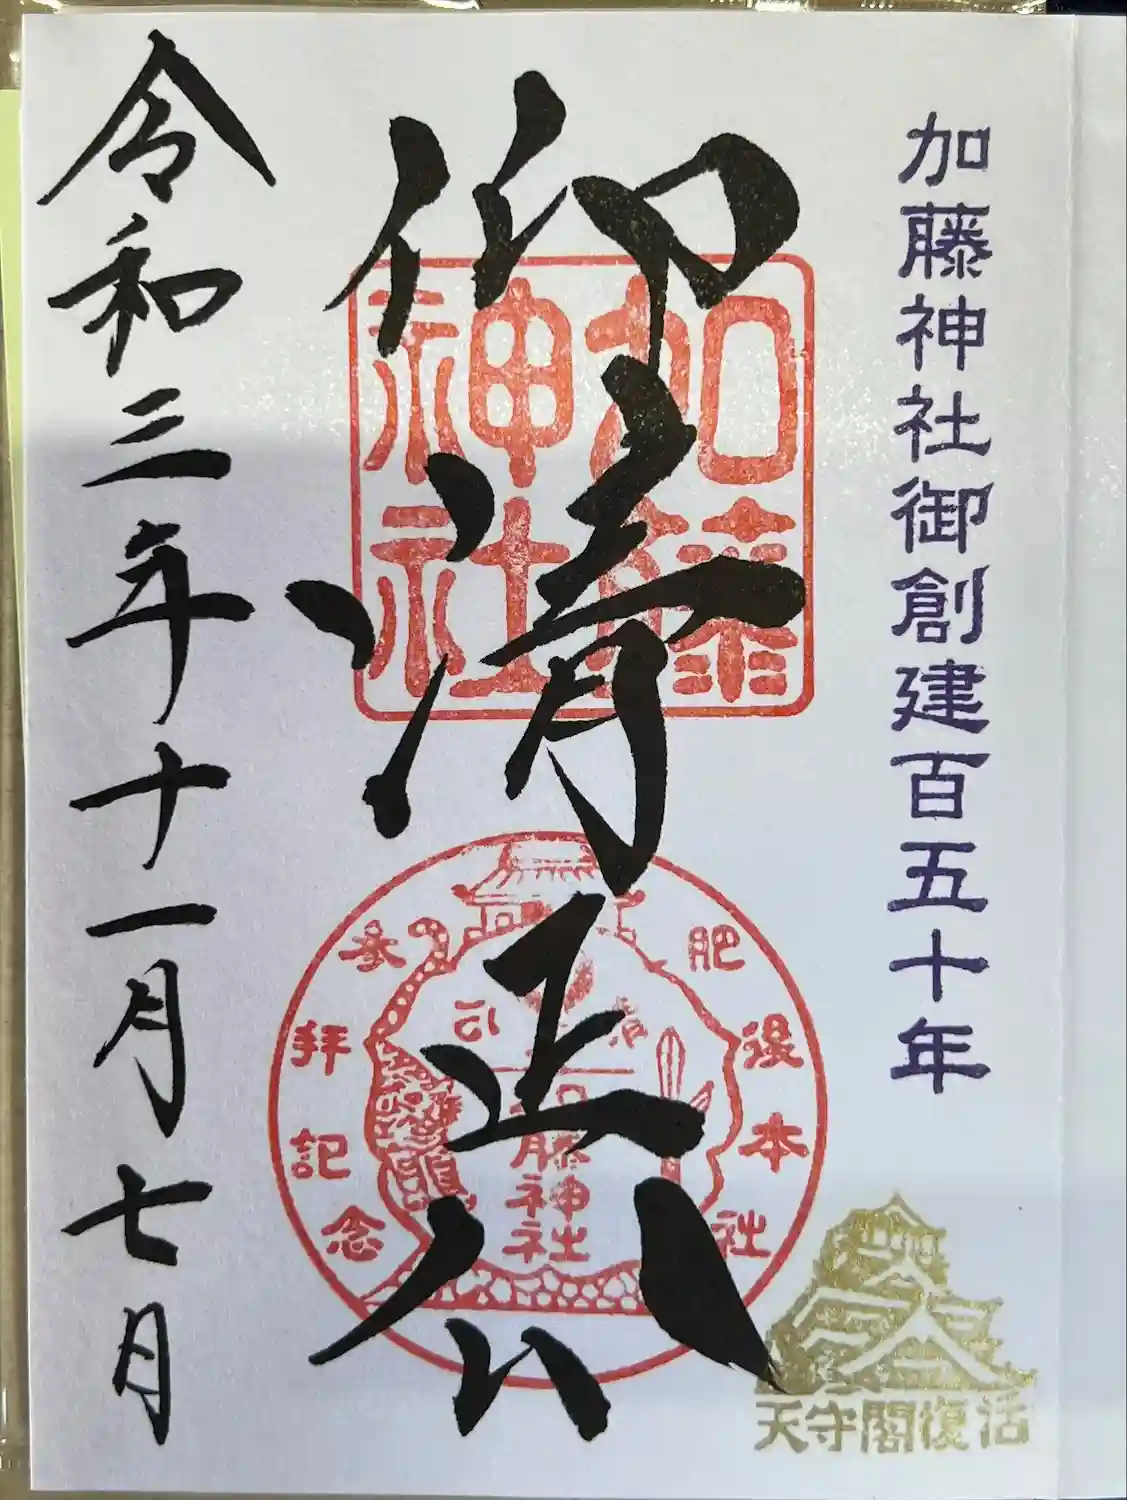 加藤神社御創建百五十年
御清正公
加藤
神社
肥後本社
参拝記念
加藤神社
天守閣復活
令和三年十一月七日